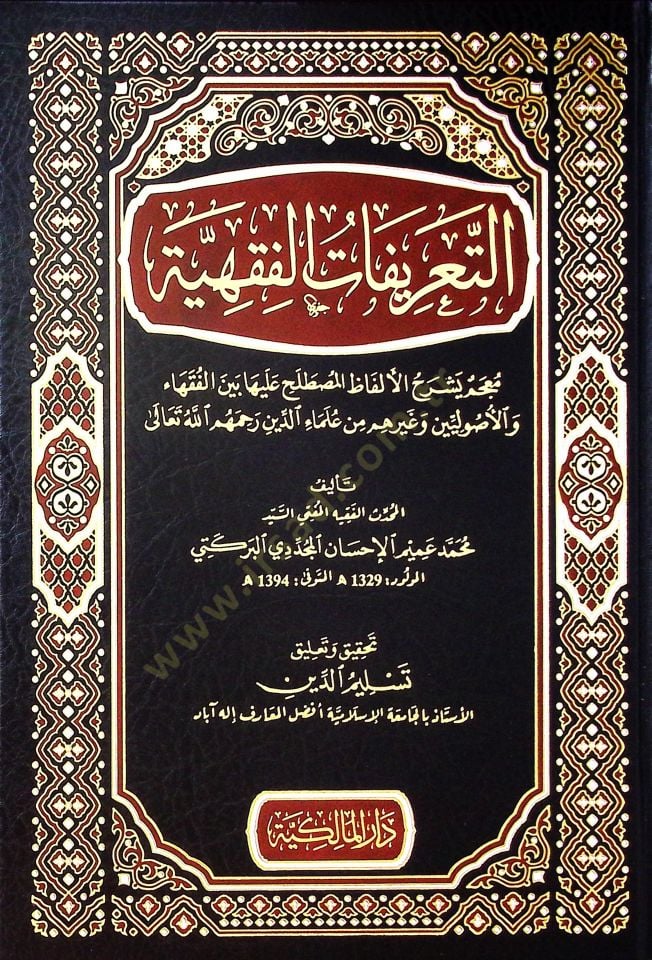 التَّعْرِيفَاتُ الفِقْهِيَّة
مُعْجَمٌ يَشْرَحُ الأَلْفَاظَ المُصْطَلَحَ عَلَيْهَا بَيْنَ الفُقَهَاءِ
وَالأُصُولِيِّينَ وَغَيْرِهِم مِن عُلَمَاءِ الدِّينِ رَحِمَهُمُ اللَّهُ تَعَالَى
تَأليفُ
المحدث الفقيه المفتي السيد
مُحَمَّد عَمِيم الإِحسَان المُجَدِّدِي البَرَكَتي
المولود: 1329 هـ المتوفى: 1394 هـ
تحقيق وتعليق
تَسْلِيمُ الدِّين
الأستاذ بالجامعة الإسلامية أفضل المعارف إله آباد
دَارُ المَالِكِيَّة
www.irsad.com.tr